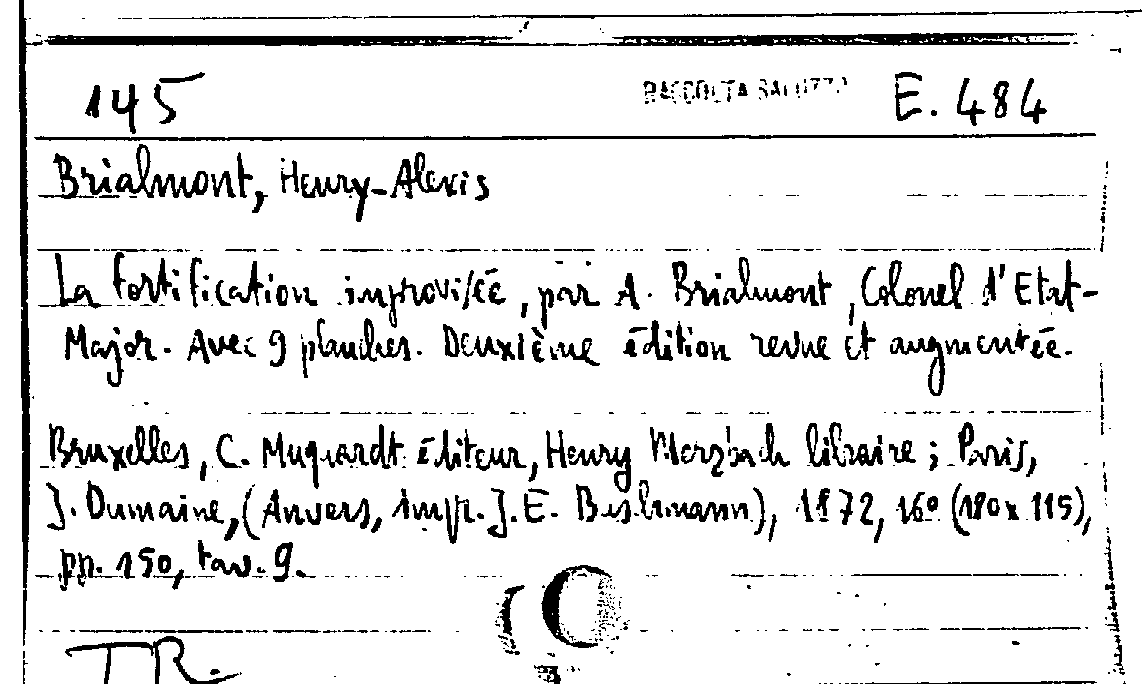 145 RACCOLTA SALUZZO E. 484
Brialmont, Henry-Alexis
La fortification improvisée, par A. Brialmont, Colonel d'Etat-
Major. Avec 9 planches. Deuxième édition revue et augmentée.
Bruxelles, C. Muquardt éditeur, Henry Merzbach libraire; Paris,
J. Dumaine, (Anvers, impr. J. E. Buschmann), 1872, 16° (180x115),
pp. 150, tav. 9.
TR.